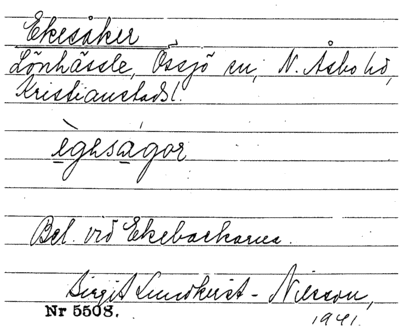 Ekesåker
Lönhässle, Össjö sn, N. Åsbo hd,
Kristianstads l.
ègəsàgor
Bel. vid Ekebackarna.
Birgit Lundkvist-Nilsson,
Nr 5508.
1941.